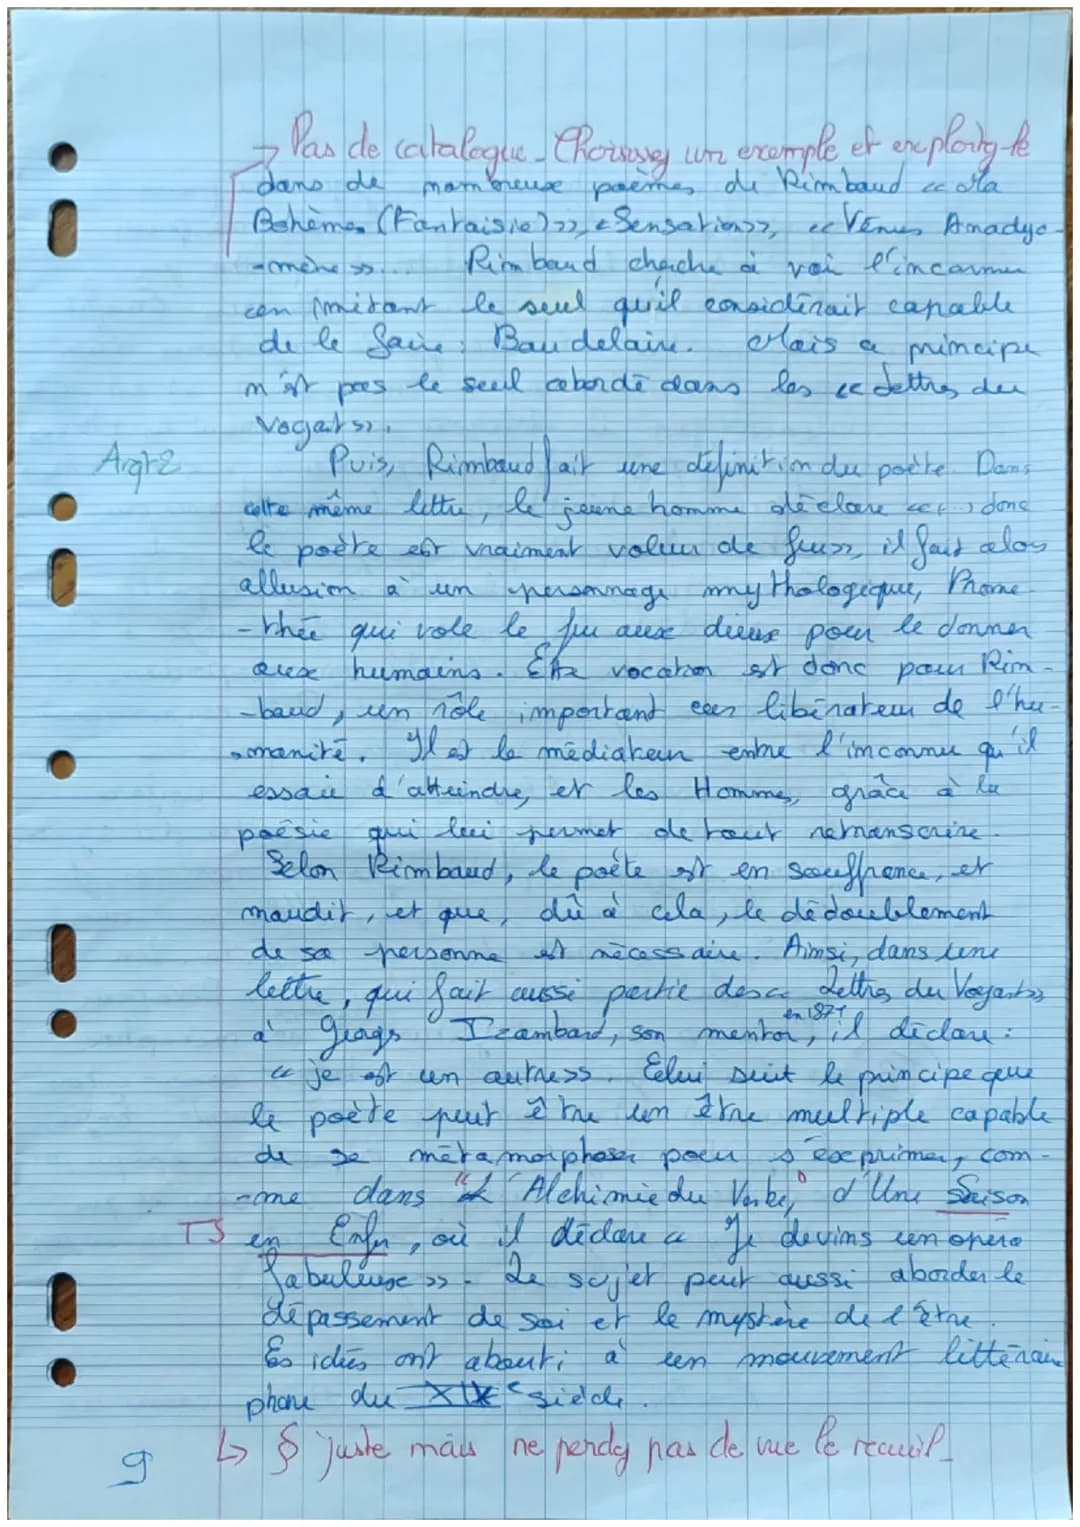 → Pas de catalogue. Choisissez un exemple et exploitez-le
dans de nombreuse poèmes, de Rimbaud « Ma
Bohème, (Fantaisie) », « Sensation », « Vénus Anadyo-
-mène »... Rimbaud cherche à voir l'inconnu
en imitant le seul qu'il considérait capable
de le faire : Baudelaire. Mais ce principe
n'est pas le seul abordé dans les « Lettres du
Voyant ».
Argt 2
Puis, Rimbaud fait une définition du poète. Dans
cette même lettre, le jeune homme déclare « (...) donc
le poète est vraiment voleur de feu », il fait alors
allusion à un personnage mythologique, Promé-
-thée qui vole le feu aux dieux pour le donner
aux humains. Cette vocation est donc pour Rim-
-baud, un rôle important car libérateur de l'hu-
-manité. Il est le médiateur entre l'inconnu qu'il
essaie d'atteindre, et les Hommes, grâce à la
poésie qui lui permet de tout retranscrire.
Selon Rimbaud, le poète est en souffrance, et
maudit, et que, dû à cela, le dédoublement
de sa personne est nécessaire. Ainsi, dans une
lettre, qui fait aussi partie des « Lettres du Voyant »
à Georges Izambard, son mentor, en 1871, il déclare :
« je est un autre ». Celui suit le principe que
le poète peut être un être multiple capable
de se métamorphoser pour s'exprimer, com-
-me dans "L'Alchimie du Verbe," d'Une Saison
TS en Enfer, où il déclare « Je devins un opéra
fabuleuse ». Le sujet peut aussi aborder le
dépassement de soi et le mystère de l'être.
Ces idées ont abouti à un mouvement littéraire
phare du XIXe siècle.
↳ § juste mais ne perdez pas de vue le recueil.
9